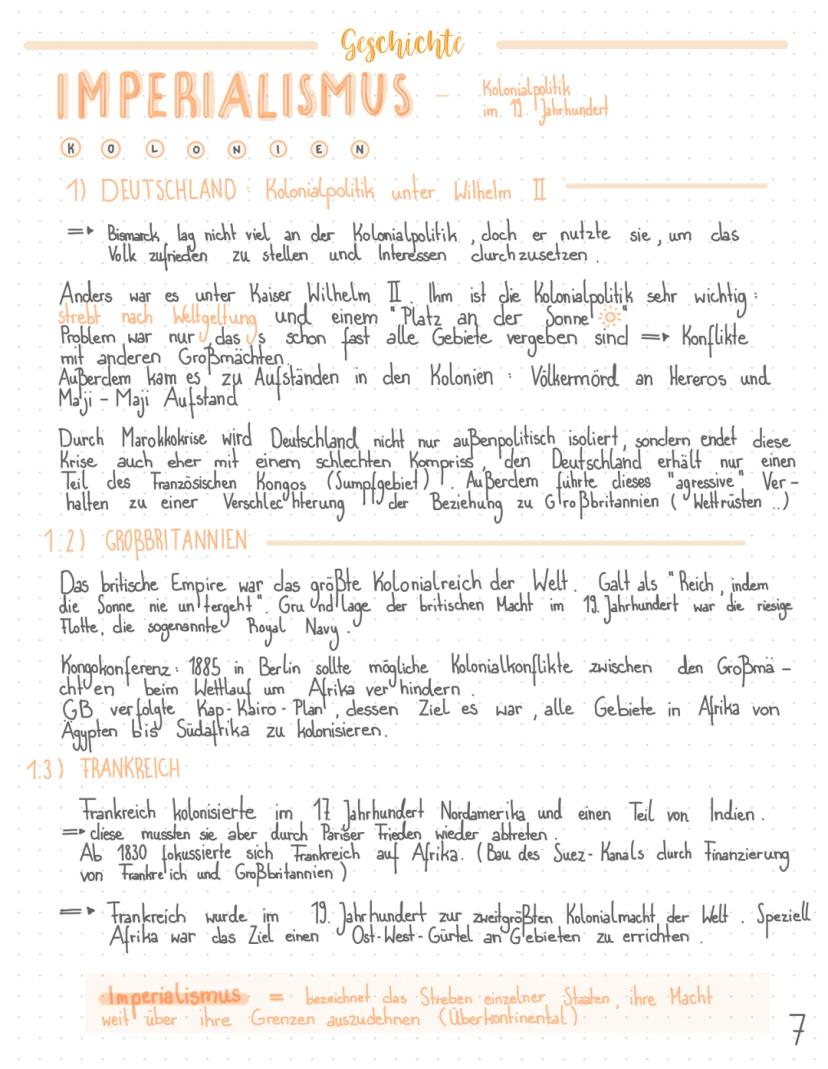 Geschichte
IMPERIALISMUS - Kolonialpolitik
im 19. Jahrhundert
KOLONIEN
1) DEUTSCHLAND : Kolonialpolitik unter Wilhelm II
=> Bismarck lag nicht viel an der Kolonialpolitik , doch er nutzte sie , um das
Volk zufrieden zu stellen und Interessen durchzusetzen .
Anders war es unter Kaiser Wilhelm II . Ihm ist die Kolonialpolitik sehr wichtig :
strebt nach Weltgeltung und einem "Platz an der Sonne"
Problem war nur , das s schon fast alle Gebiete vergeben sind => Konflikte
mit anderen Großmächten .
Außerdem kam es zu Aufständen in den Kolonien : Völkermörd an Hereros und
Maji - Maji Aufstand
Durch Marokkokrise wird Deutschland nicht nur außenpolitisch isoliert , sondern endet diese
Krise auch eher mit einem schlechten Kompriss , den Deutschland erhält nur einen
Teil des Französischen Kongos (Sumpfgebiet) . Außerdem führte dieses "agressive" Ver-
halten zu einer Verschlechterung der Beziehung zu Großbritannien ( Wettrüsten ..)
1.2) GROßBRITANNIEN
Das britische Empire war das größte Kolonialreich der Welt . Galt als "Reich , indem
die Sonne nie untergeht" . Grundlage der britischen Macht im 19. Jahrhundert war die riesige
Flotte, die sogenannte Royal Navy .
Kongokonferenz : 1885 in Berlin sollte mögliche Kolonialkonflikte zwischen den Großmä -
chten beim Wettlauf um Afrika verhindern .
GB verfolgte Kap - Kairo - Plan , dessen Ziel es war , alle Gebiete in Afrika von
Ägypten bis Südafrika zu kolonisieren .
1.3) FRANKREICH
Frankreich kolonisierte im 17 Jahrhundert Nordamerika und einen Teil von Indien .
=> diese mussten sie aber durch Pariser Frieden wieder abtreten .
Ab 1830 fokussierte sich Frankreich auf Afrika . (Bau des Suez - Kanals durch Finanzierung
von Frankreich und Großbritannien )
=> Frankreich wurde im 19. Jahrhundert zur zweitgrößten Kolonialmacht der Welt . Speziell
Afrika war das Ziel einen Ost-West-Gürtel an Gebieten zu errichten .
Imperialismus = bezeichnet das Streben einzelner Staaten , ihre Macht
weit über ihre Grenzen auszudehnen (Überkontinental)
7